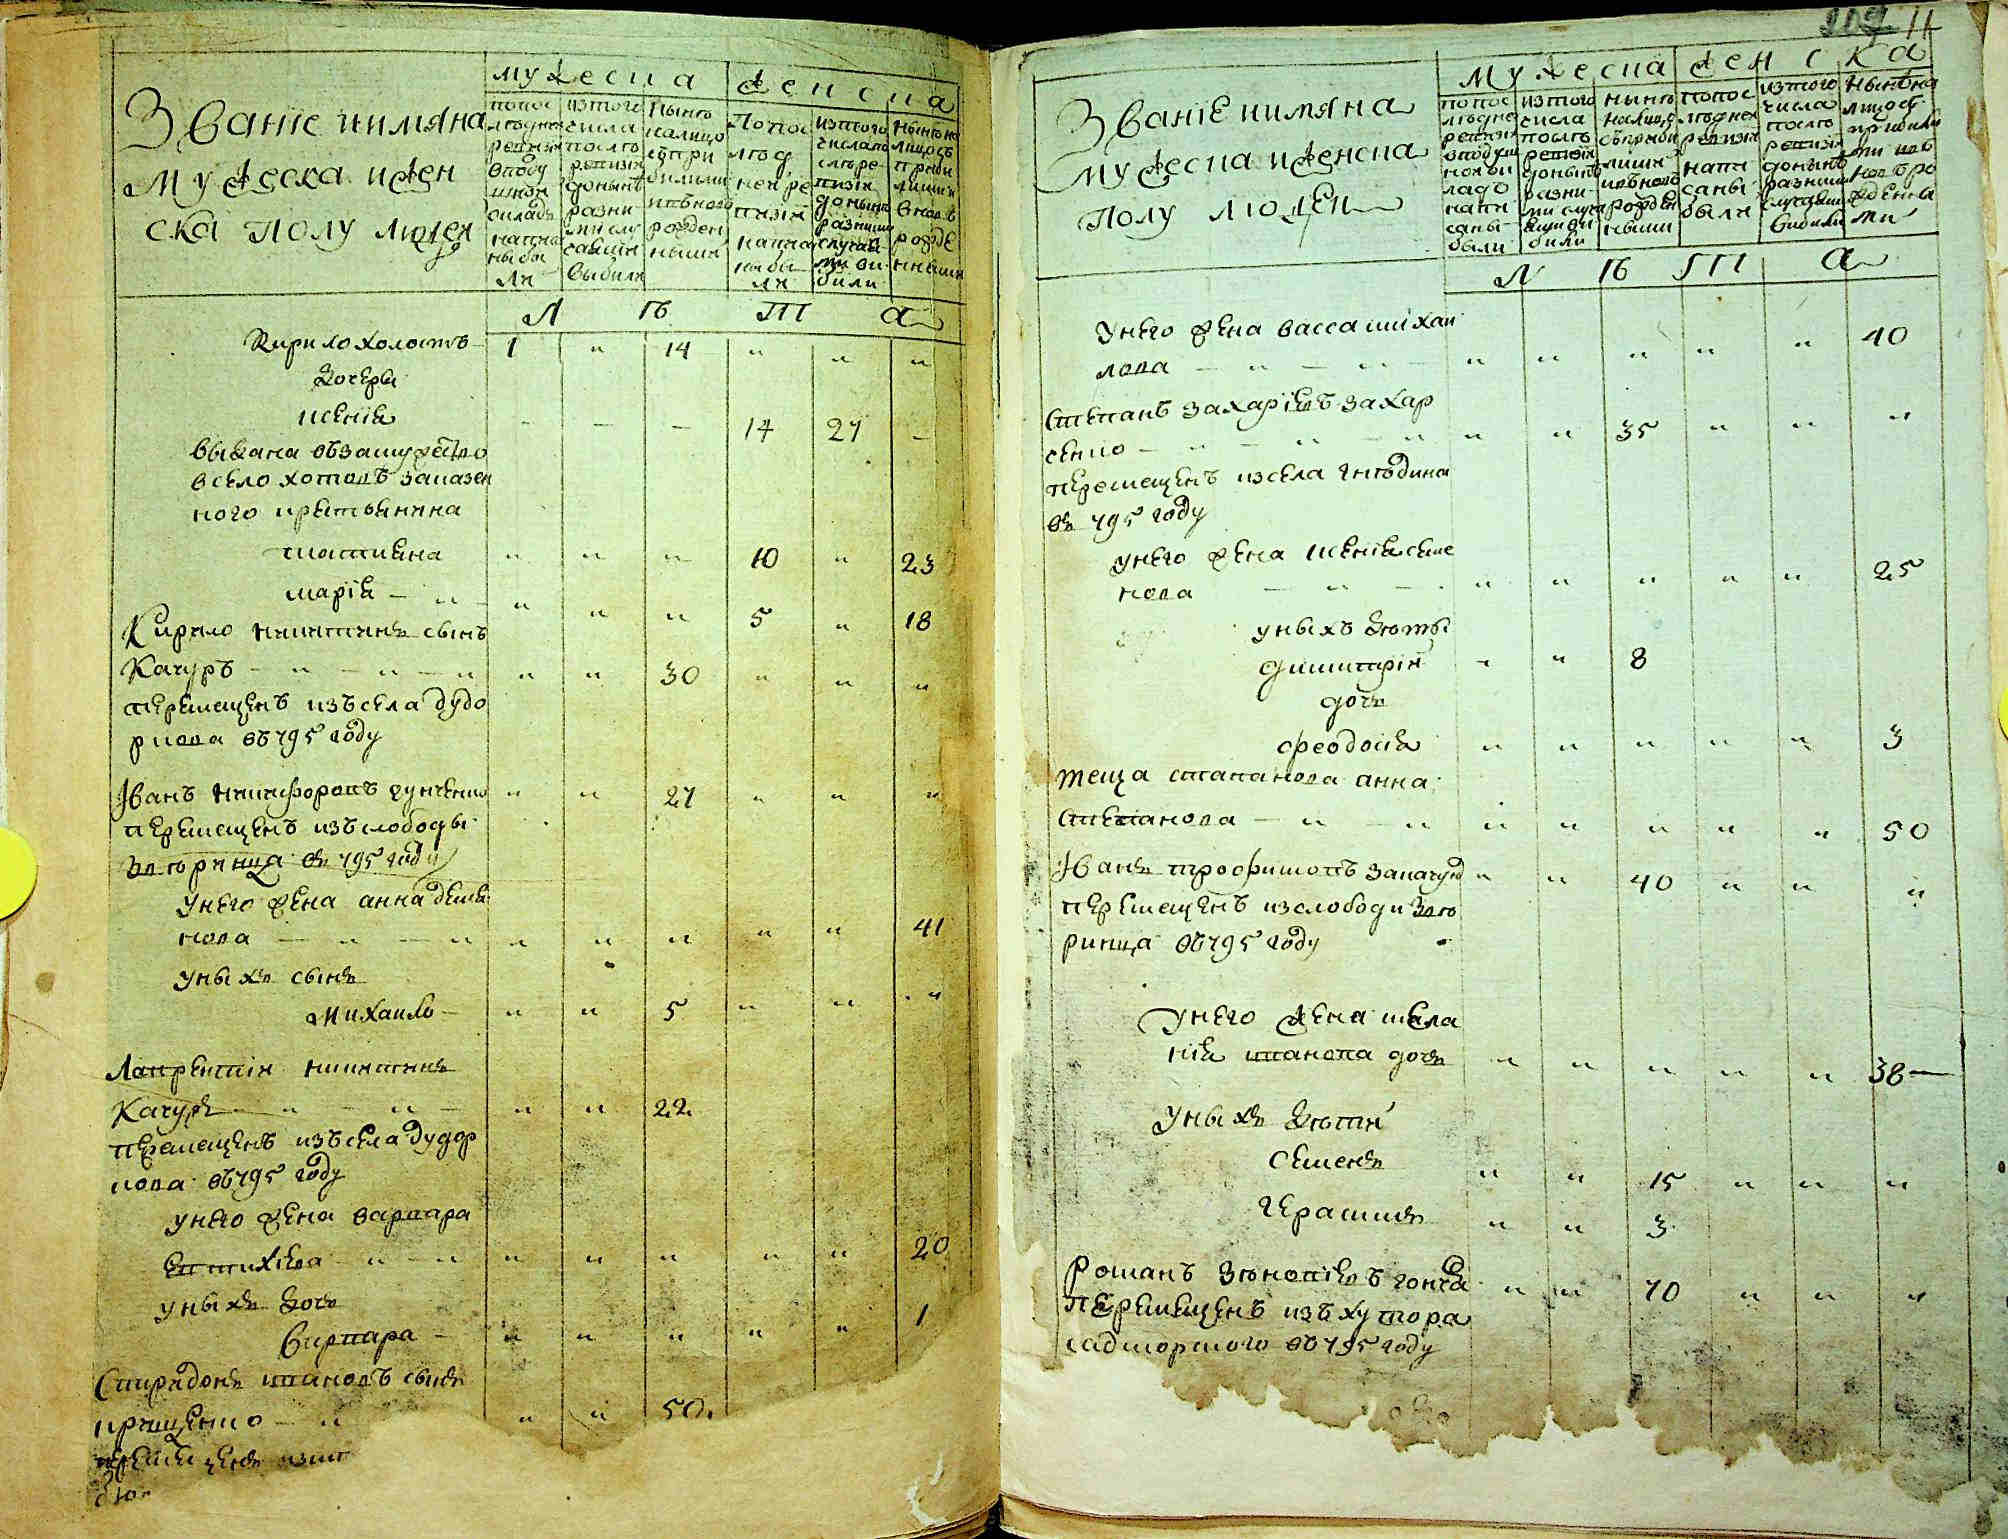 Званіе иимяна
мужеска ижен
ска полу людей
мужеска женска
попос
лѣдней
ревизіи
вподу
шном
окладѣ
написа
ны бы
ли
изтого
числа
послѣ
ревизіи
донынѣ
разны
ми слу
чаями
выбили
нынѣ
налицо
съпри
былими
ивновь
рожден
ными
попос
лѣд
ней ре
визіи
написа
ны бы
ли
изтого
числапо
слѣ ре
визіи
донынѣ
разними
случая
ми ви
били
нынѣ на
лицо съ
приби
лими
вновь
рожде
нными
Л ѣ т а
Кирило холостъ 1 " 14 " " "
Дочери
ксенія - - - 14 27 -
выдана въ замужество
всело хотовъ заказен
ного крестьянина
татияна " " " 10 " 23
марія " " " 5 " 18
Кирило никитинъ сынъ
Качуръ " " 30 " " "
перемещенъ изъ села дудо
ркова въ 795 году
Іванъ никифоровъ гунченко " " 27 " " "
перемещенъ изъ слободы
загоринца въ 795 году
унего жена анна деми
нова " " " " " 41
унихъ сынъ
михаило " " 5 " " "
Лаврентіи никитинъ
Качуръ " " 22
перемещенъ изъ села дудор
кова въ 795 году
унего жена варвара
евтихіева " " " " " 20
унихъ дочь
варвара " " " " " 1
Спиридонъ ивановъ сынъ
кращенко " " 50
перемещенъ изъ
11
Званіе иимяна
мужеска иженска
полу людей
мужеска женска
попос
лѣдне
ревизіи
вподуш
номок
ладѣ
напи
саны
были
изтого
числа
послѣ
ревизіи
донынѣ
разни
ми случа
ями ви
били
нынѣ
налицо
съприби
лими
ивновь
рожден
ными
попос
лѣдней
ревизіи
напи
саны
были
изтого
числа
послѣ
ревизіи
донынѣ
разними
случаями
вибили
нынѣ на
лицосъ
прибили
ми ив
новь ро
жденны
ми
Л ѣ т а
унего жена васса михаи
лова " " " " " 40
степанъ захаріевъ захар
ченко " " 35 " " "
перемещенъ изсела гнѣдина
въ 795 году
унего жена ксенія семе
нова " " " " " 25
унихъ дѣти
димитрій " " 8
дочь
феодосія " " " " " 3
теща стапанова анна
степанова " " " " " 50
Іванъ трофимовъ запагуд " " 40 " " "
перемещенъ изслободи заго
ринца въ 795 году
унего жена мела
нія иванова дочь " " " " " 38
унихъ дѣти
семенъ " " 15 " " "
герасимъ " " 3
романъ зѣновіевъ гонча " " 70 " " "
перемещенъ изъ хутора
въ 795 году